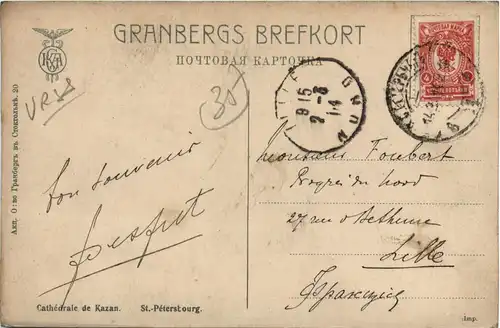 GRANBERGS BREFKORT
ПОЧТОВАЯ КАРТОЧКА
URSS
30
LILLE
9 15
2 - 3
14
NORD
Bon Souvenir
Monsieur Foubert
Progrès du Nord
27 rue de Bethune
Lille
Франция
Акц. О-во Гранбергъ въ Стокгольмѣ. 20
Cathédrale de Kazan. St.-Pétersbourg.
Imp.